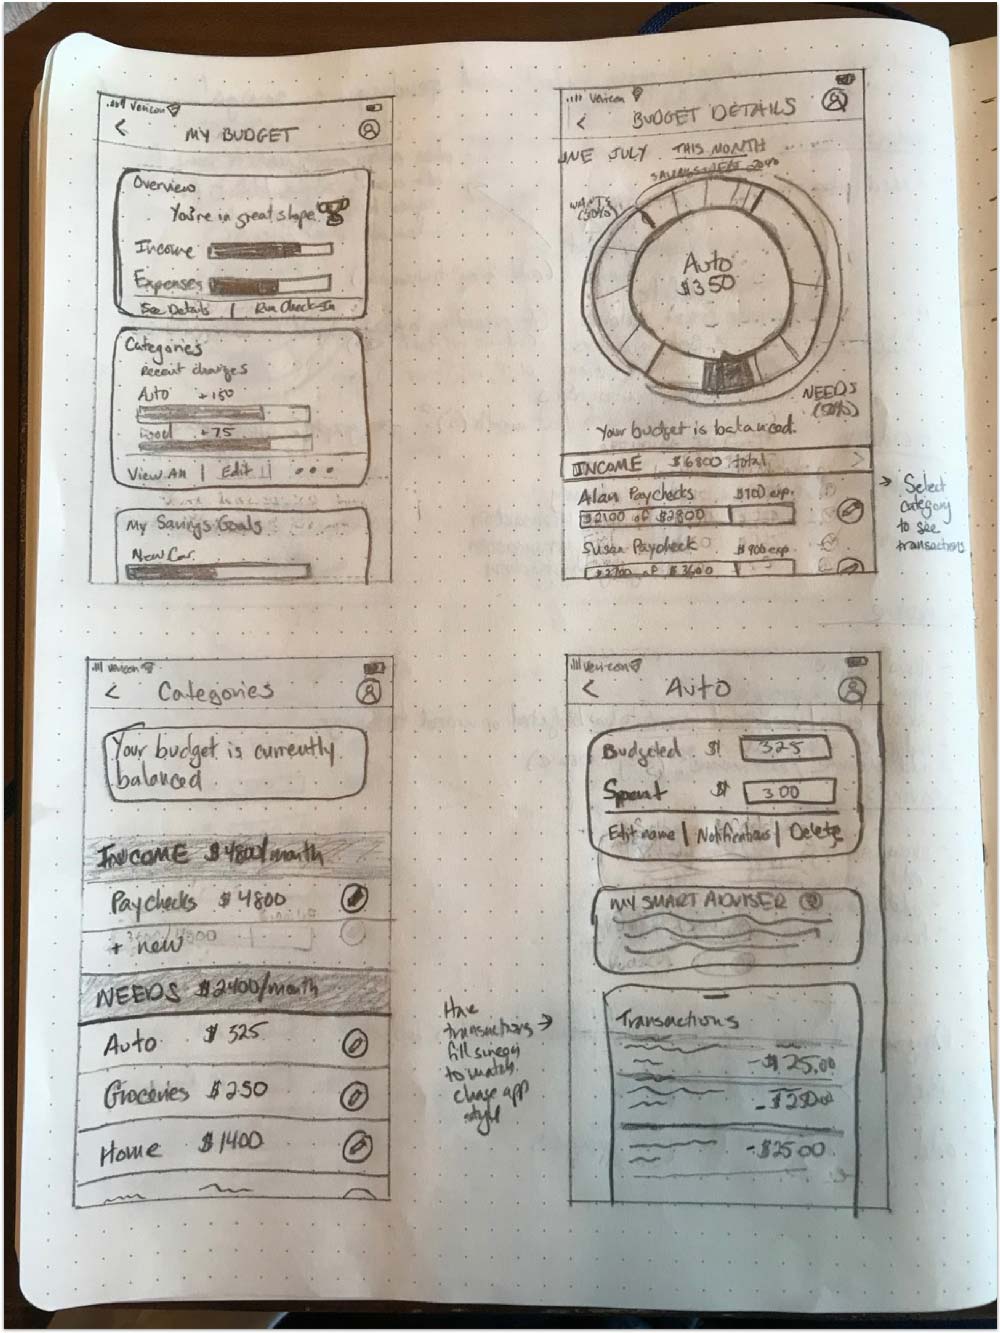 Verizon
<
MY BUDGET
Overview
You're in great shape.
Income
Expenses
See Details | Run Check-In
Categories
Recent changes
Auto +150
Food +75
View All | Edit | • • •
My Savings Goals
New Car
Verizon
<
BUDGET DETAILS
UNE JULY THIS MONTH
WANTS
(30%)
Auto
$350
NEEDS
(50%)
Your budget is balanced.
INCOME $6800 total >
Alan Paychecks $700 exp.
$2100 of $2800
Susan Paycheck $900 exp.
$2700 of $3600
→ Select
category
to see
transactions
Verizon
< Categories
Your budget is currently
balanced
INCOME $4800/month
Paychecks $4800
+ new
NEEDS $2400/month
Auto $325
Groceries $250
Home $1400
Have
transactions →
fill
to match
chase app
style
Verizon
< Auto
Budgeted $ 325
Spent $ 300
Edit name | Notifications | Delete
MY SMART ADVISER
Transactions
-$25.00
-$250.00
-$25.00